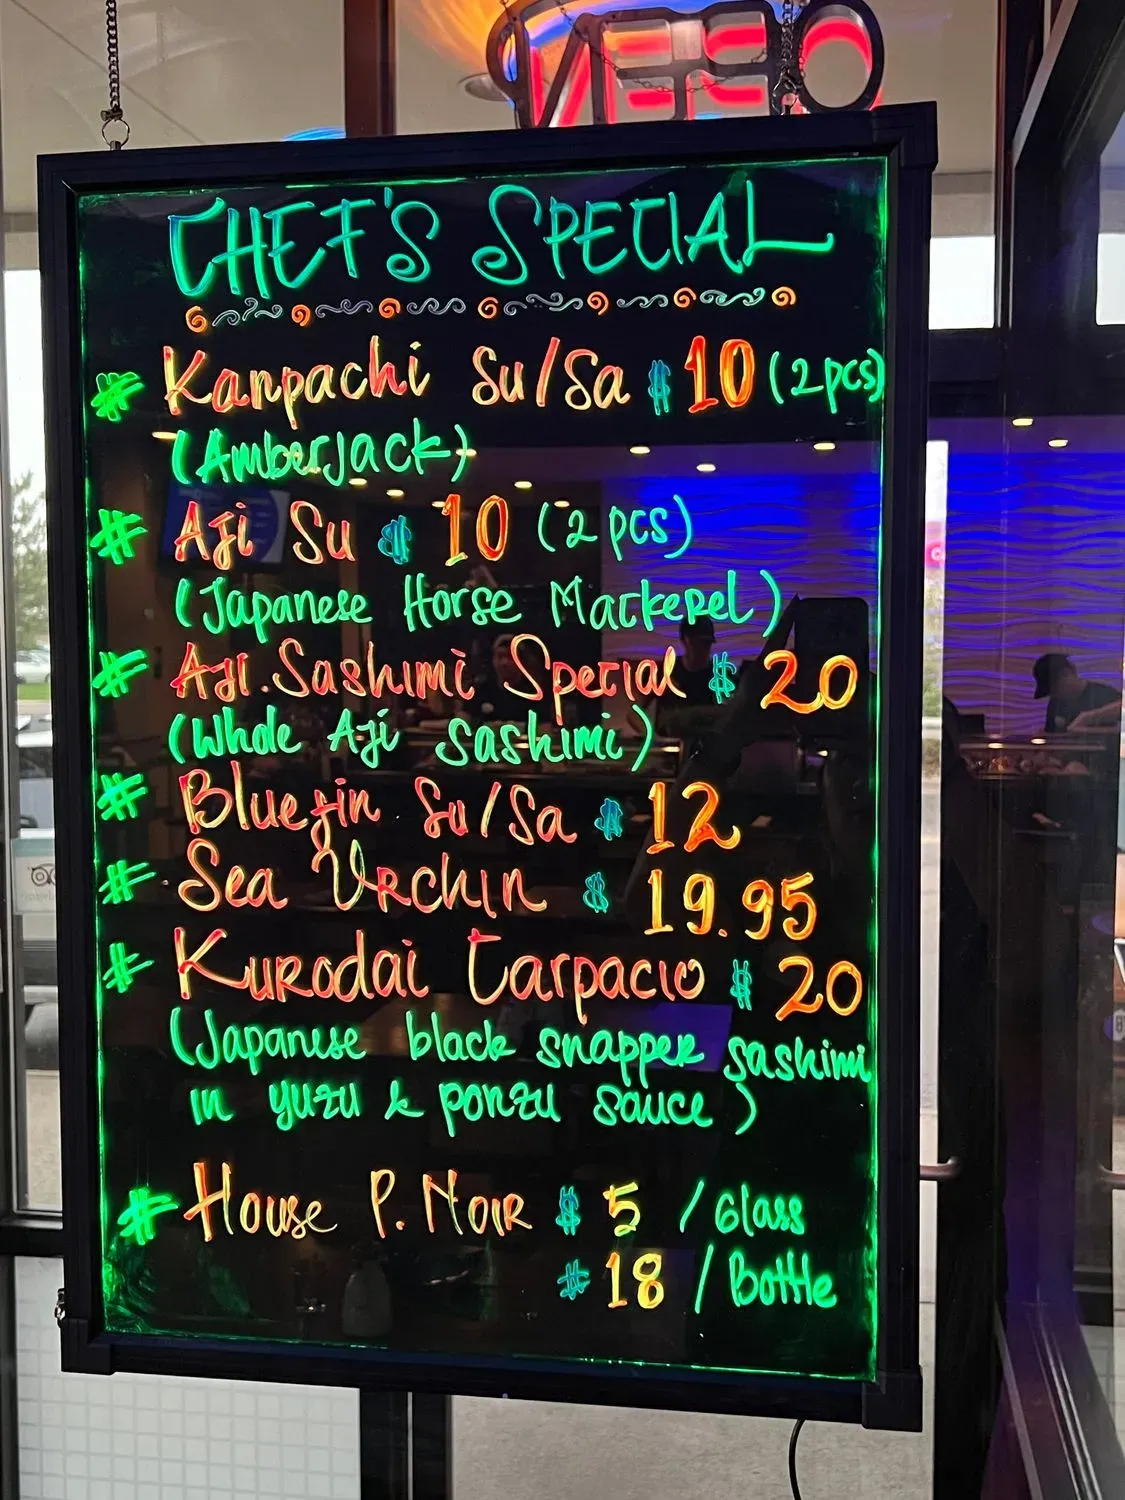 OPEN
CHEF'S SPECIAL
# Kanpachi Su/Sa $10 (2pcs)
(Amberjack)
# Aji Su $10 (2 pcs)
(Japanese Horse Mackerel)
# Aji. Sashimi Special $20
(Whole Aji Sashimi)
# Bluefin Su/Sa $12
# Sea Urchin $19.95
# Kurodai Carpacio $20
(Japanese black snapper sashimi
in yuzu & ponzu sauce)
# House P. Noir $5 / Glass
$18 / Bottle